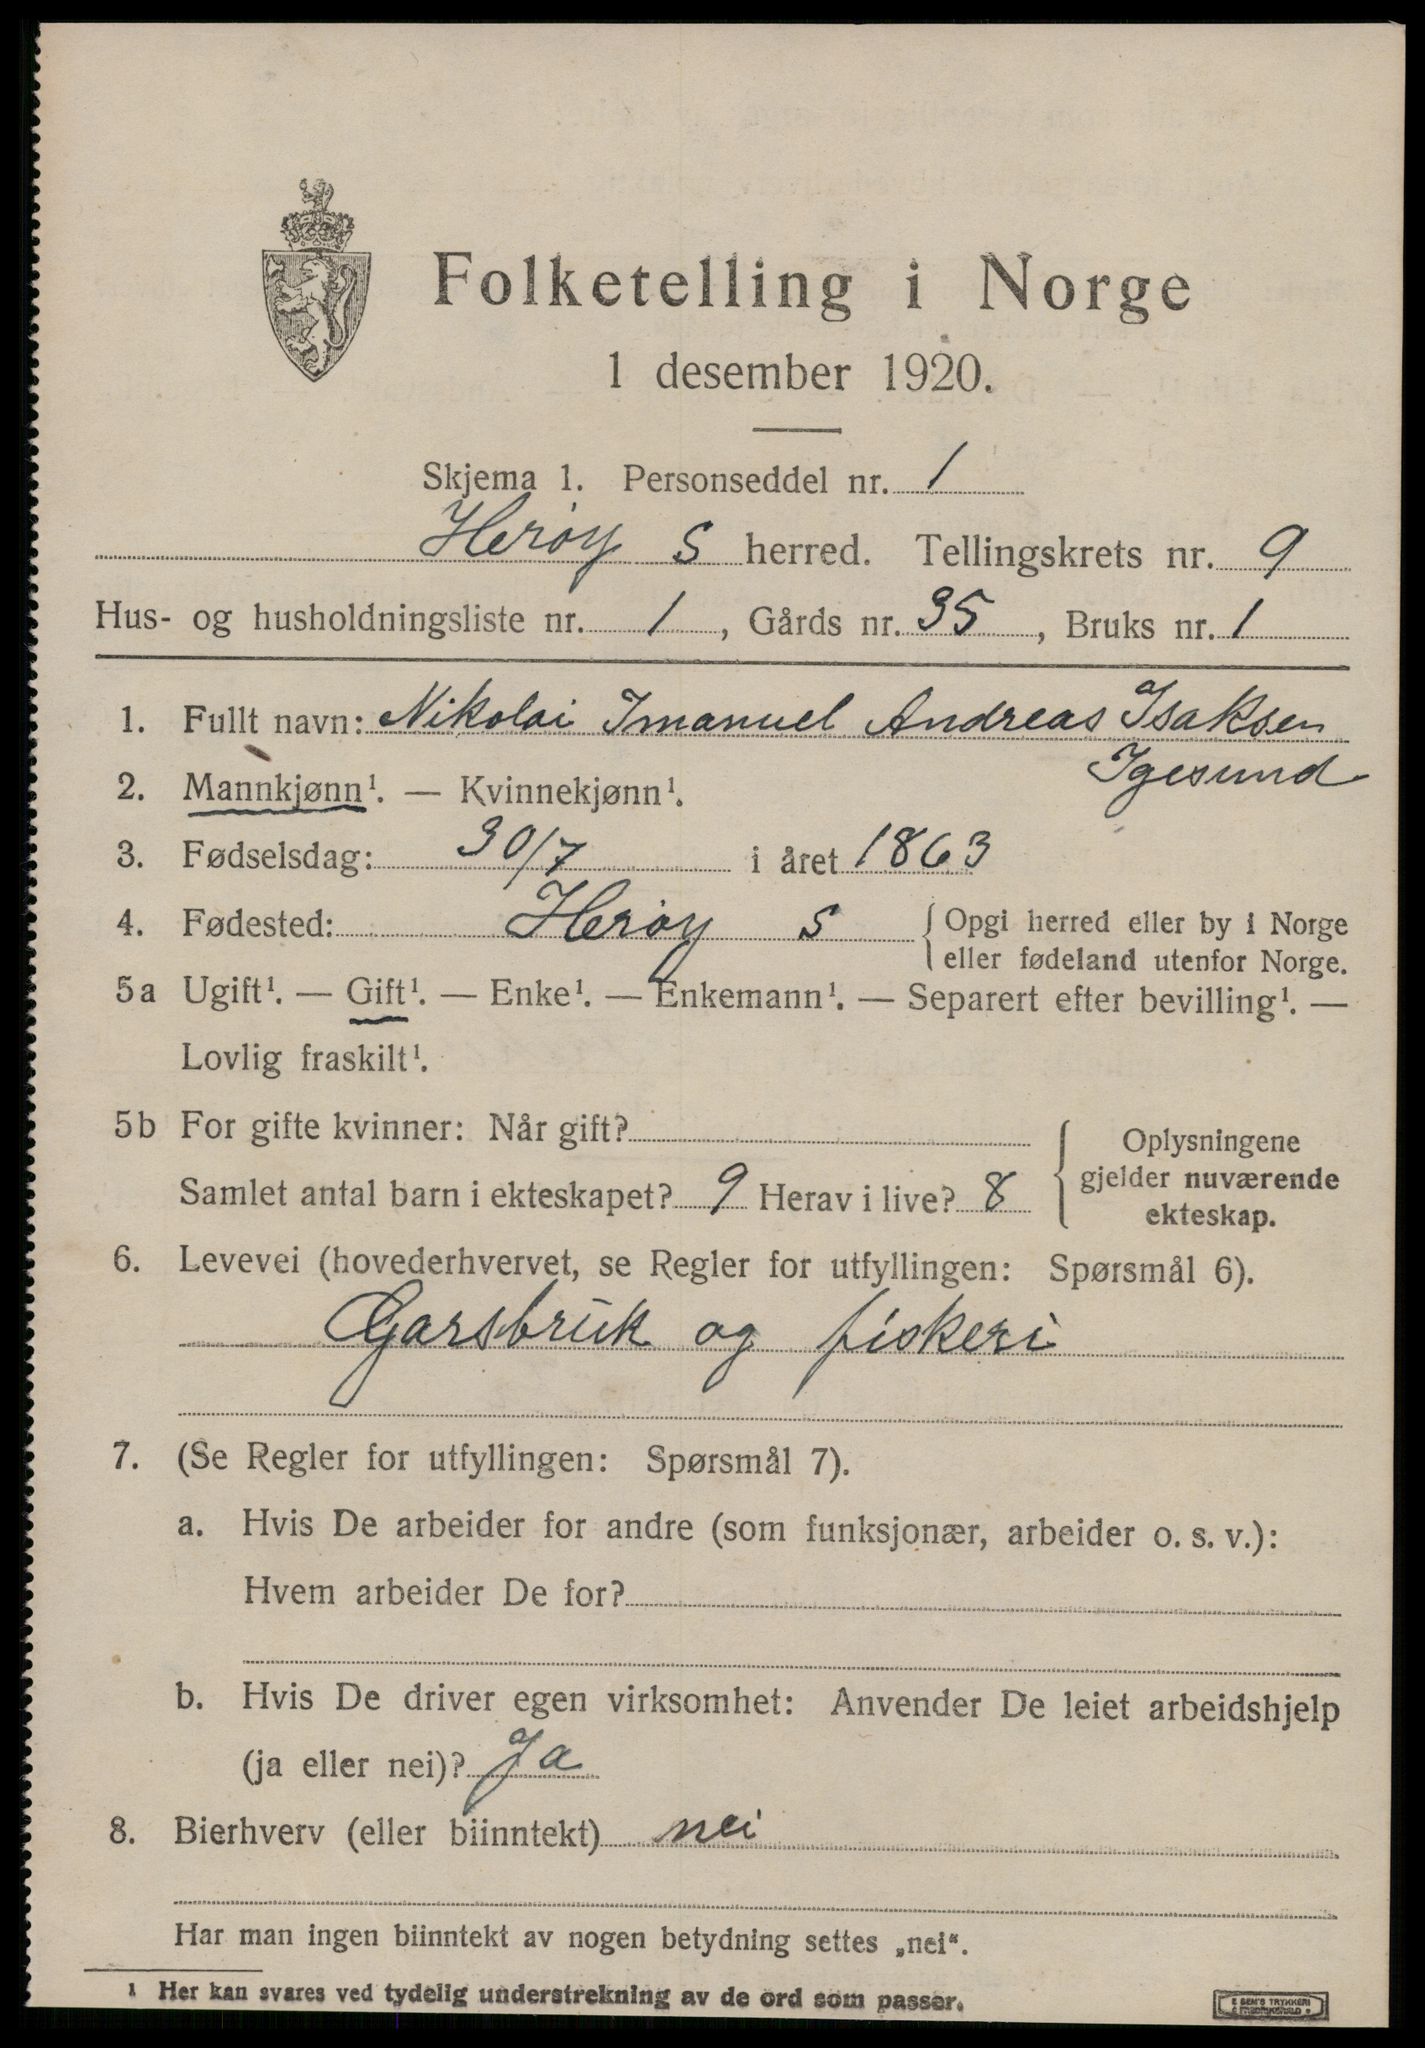 Folketelling i Norge
1 desember 1920.
Skjema 1. Personseddel nr. 1
Herøy S herred. Tellingskrets nr. 9
Hus- og husholdningsliste nr. 1, Gårds nr. 35, Bruks nr. 1
1. Fullt navn: Nikolai Imanuel Andreas Isaksen
Igesund
2. Mannkjønn¹. — Kvinnekjønn¹.
3. Fødselsdag: 30/7 i året 1863
4. Fødested: Herøy S { Opgi herred eller by i Norge
eller fødeland utenfor Norge.
5a Ugift¹. — Gift¹. — Enke¹. — Enkemann¹. — Separert efter bevilling¹. —
Lovlig fraskilt¹.
5b For gifte kvinner: Når gift?
Samlet antal barn i ekteskapet? 9 Herav i live? 8
Oplysningene
gjelder nuværende
ekteskap.
6. Levevei (hovederhvervet, se Regler for utfyllingen: Spørsmål 6).
Garsbruk og fiskeri
7. (Se Regler for utfyllingen: Spørsmål 7).
a. Hvis De arbeider for andre (som funksjonær, arbeider o. s. v.):
Hvem arbeider De for?
b. Hvis De driver egen virksomhet: Anvender De leiet arbeidshjelp
(ja eller nei)? Ja
8. Bierhverv (eller biinntekt) nei
Har man ingen biinntekt av nogen betydning settes „nei“.
¹ Her kan svares ved tydelig understrekning av de ord som passer.
E SEM'S TRYKKERI
FREDRIKSHALD